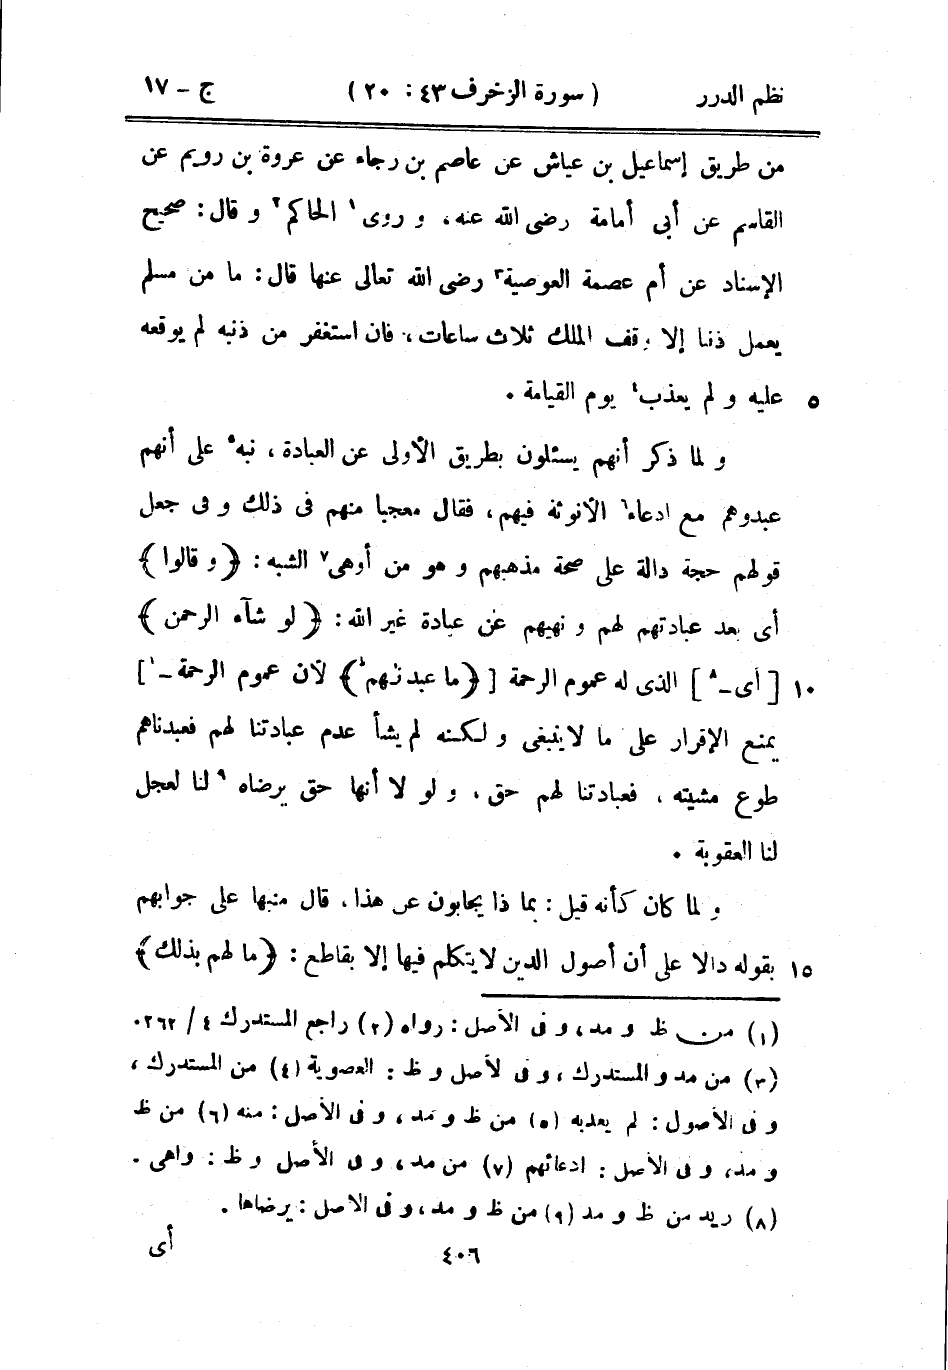 نظم الدرر ( سورة الزخرف ٤٣ : ٢٠ ) ج - ١٧
من طريق إسماعيل بن عياش عن عاصم بن رجاء عن عروة بن رويم عن
القاسم عن أبى أمامة رضى الله عنه، و روى١ الحاكم٢ و قال: صحيح
الإسناد عن أم عصمة العوصية٣ رضى الله تعالى عنها قال: ما من مسلم
يعمل ذنبا إلا وقف الملك ثلاث ساعات، فان استغفر من ذنبه لم يوقعه
٥ عليه و لم يعذب٤ يوم القيامة .
و لما ذكر أنهم يسئلون بطريق الأولى عن العبادة، نبه٥ على أنهم
عبدوهم مع ادعاء٦ الأنوثة فيهم، فقال معجبا منهم فى ذلك و فى جعل
قولهم حجة دالة على صحة مذهبهم و هو من أوهى٧ الشبه: ﴿و قالوا﴾
أى بعد عبادتهم لهم و نهيهم عن عبادة غير الله: ﴿لو شآء الرحمن﴾
١٠ [أى-٨] الذى له عموم الرحمة [﴿ما عبدنٰهم﴾ لأن عموم الرحمة-١]
يمنع الإقرار على ما لا ينبغى و لكنه لم يشأ عدم عبادتنا لهم فعبدناهم
طوع مشيته، فعبادتنا لهم حق، و لو لا أنها حق يرضاه٩ لنا لعجل
لنا العقوبة .
و لما كان كأنه قيل: بما ذا يجابون عن هذا، قال منبها على جوابهم
١٥ بقوله دالا على أن أصول الدين لا يتكلم فيها إلا بقاطع: ﴿ما لهم بذلك﴾
(١) من ظ و مد، و فى الأصل: رواه (٢) راجع المستدرك ٤/٢٦٢.
(٣) من مد و المستدرك، و فى لأصل و ظ: العصوية (٤) من المستدرك،
و فى الأصول: لم يعذبه (٥) من ظ و مد، و فى الأصل: منه (٦) من ظ
و مد، و فى الأصل: ادعائهم (٧) من مد، و فى الأصل و ظ: واهى.
(٨) زيد من ظ و مد (٩) من ظ و مد، و فى الاصل: يرضاها.
٤٠٦ أى